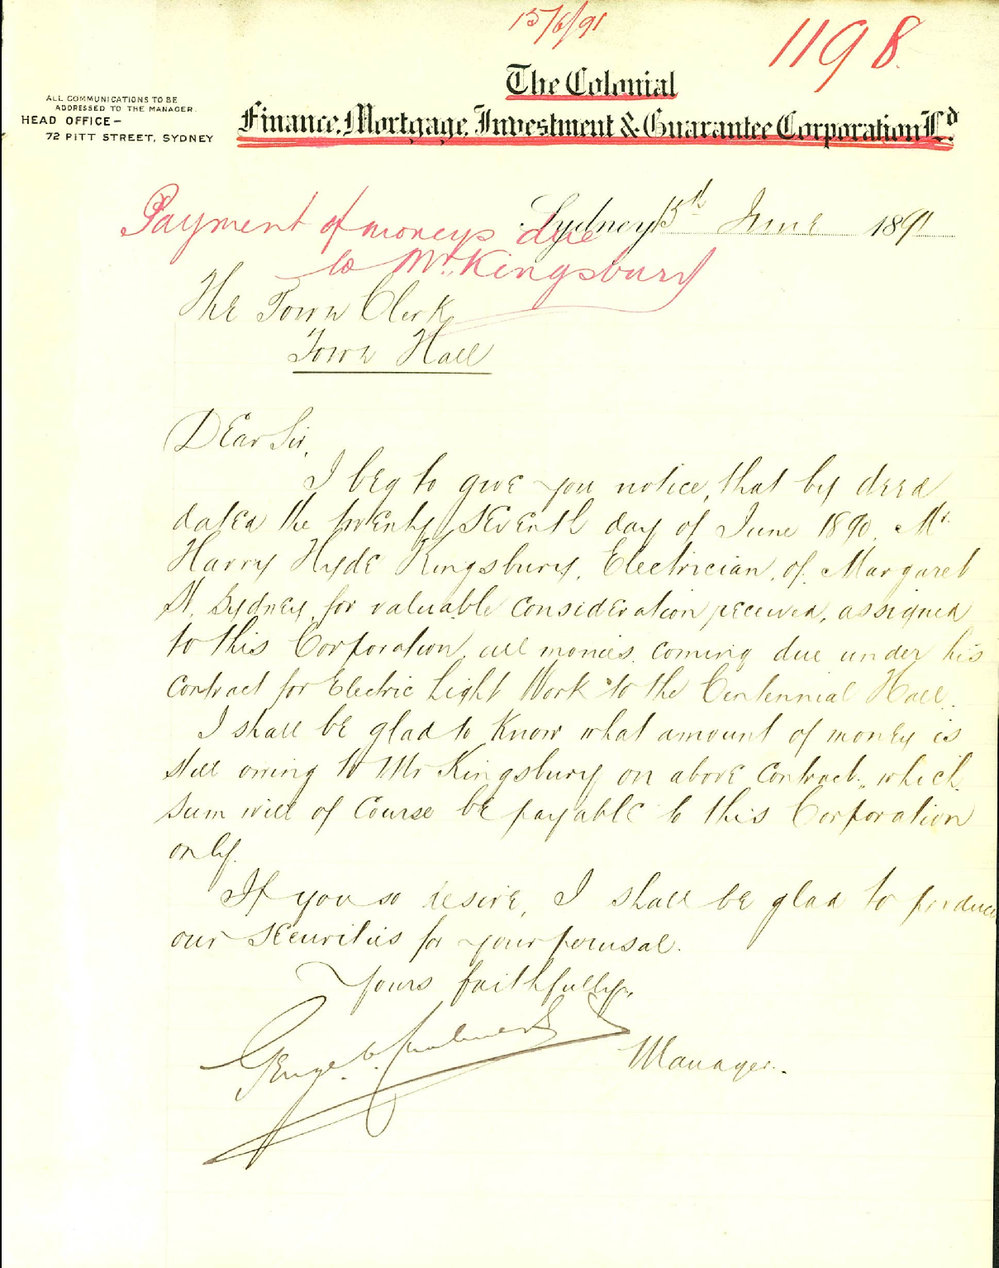 15/6/91
1198.
ALL COMMUNICATIONS TO BE
ADDRESSED TO THE MANAGER.
HEAD OFFICE –
72 PITT STREET, SYDNEY
The Colonial
Finance, Mortgage, Investment & Guarantee Corporation Ld.
Sydney 15th June 1891
Payment of moneys due
to Mr. Kingsbury
The Town Clerk
Town Hall
Dear Sir,
I beg to give you notice, that by deed
dated the twenty seventh day of June 1890. Mr.
Harry Hyde Kingsbury, Electrician, of, Margaret
St, Sydney, for valuable consideration received, assigned
to this Corporation, all monies, coming due under his
contract for Electric Light Work to the Centennial Hall.
I shall be glad to know what amount of money is
still owing to Mr Kingsbury on above contract, which
sum will of course be payable to this Corporation
only.
If you so desire, I shall be glad to produce
our securities for your perusal.
Yours faithfully,
George
Manager.